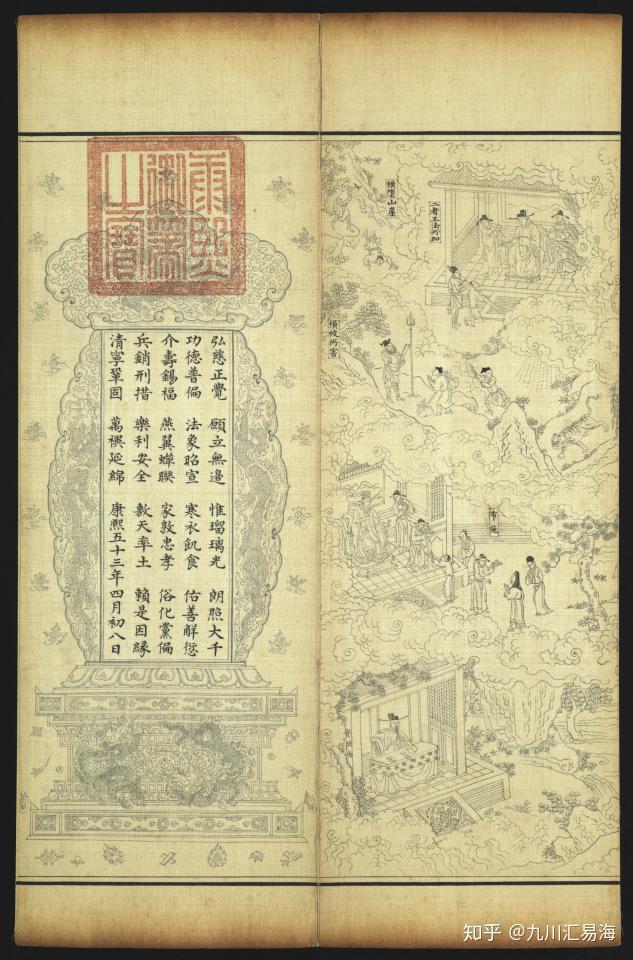 二者王法所加
橫墮山崖
橫被所害
布施
康熙御筆之寶
弘慈正覺 願立無邊 惟瑠璃光 朗照大千
功德普徧 法象昭宣 寒衣飢食 佑善解愆
介壽錫福 燕翼蟬聯 家敦忠孝 俗化黨偏
兵銷刑措 樂利安全 敷天率土 賴是因緣
清寧鞏固 萬禩延綿 康熙五十三年四月初八日
知乎 @九川汇易海